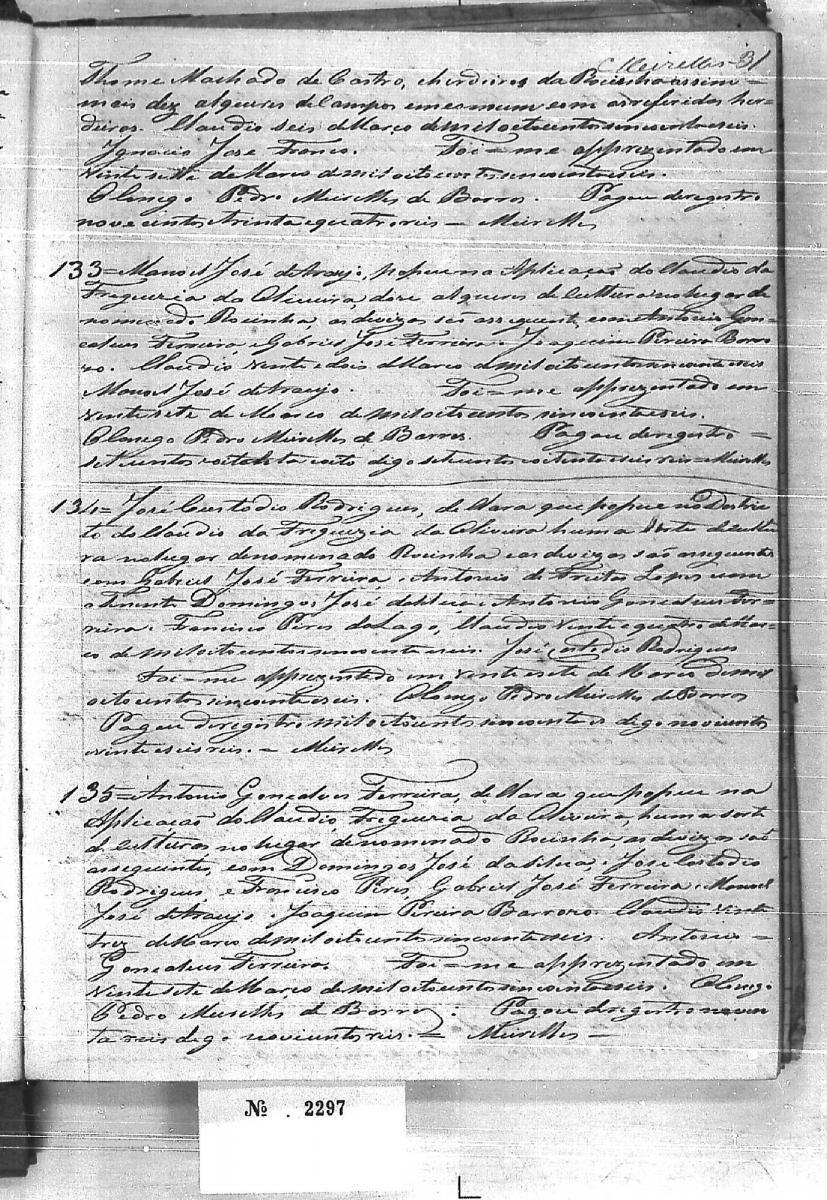 Meirelles 31
Thome Machado de Castro, eherdeiros da Rocinha assim =
mais dez alqueires de Campos em comum com as referidos her-
deiros. Claudio seis de Março de mil oito centos sincoenta e seis.
Ignacio José Franco. Foi = me apprezentado em
vinte sete de Março de mil oito centos sincoenta e seis.
O Conego Pedro Meirelles de Barros. Pagou de registro
nove centos trinta e quatro reis = Meirelles
133 = Manoel José de Araujo, possue na Aplicação do Claudio da
Freguezia da Oliveira doze alqueres de Cultura no lugar de
nominado Rocinha, as devizas são as seguentes com Antonio Gon-
calves Ferreira, e Gabriel José Ferreira e Joaquim Pereira Barro
zo. Claudio, vinte e dois de Março de mil oito centos sincoenta e seis
Manoel José de Araujo. Foi = me apprezentado em
vinte sete de Março de mil oito centos sincoenta e seis.
O Conego Pedro Meirelles de Barros. Pagou de registro =
sete centos e oitenta e oito digo sete centos e oitenta e seis reis = Meirelles
134 = José Custodio Rodrigues, declara que possue no Destric
to do Claudio da Freguezia da Oliveira huma sorte de cultu
ra no lugar denomenado Rocinha e as devizas são as seguentes
com Gabriel José Ferreira e Antonio de Freitas Lopes e com
o Tenente Domingos José da Silva e Antonio Goncalves Fer-
reira e Francisco Pires do Lago, Claudio vinte e quatro de Mar-
co de mil oito centos sincoenta e seis. José Custodio Rodrigues
Foi = me apprezentado em vinte e sete de Março de mil
oito centos sincoenta e seis. O Conego Pedro Meirelles de Barros
Pagou de registro mil oito centos sincoenta e digo novecentos
vinte e seis reis. = Meirelles
135 = Antonio Gonçalves Ferreira, declara que possue na
Aplicação do Claudio, Freguezia da Oliveira, huma sorte
de culturas no lugar denominado Rocinha, as devizas são
as seguentes, com Domingos José da Silva, e José Costodio
Rodrigues e Francisco Pires, Gabriel José Ferreira e Manoel
José de Araujo e Joaquim Pereira Barrozo. Claudio vinte
trez de Março de mil oito centos sincoenta e seis. Antonio =
Gonçalves Ferreira. Foi = me apprezentado em
vinte sete de Março de mil oito centos sincoenta e seis. O Conego
Pedro Meirelles de Barros. Pagou de registro noven
ta reis digo novecentos reis. = Meirelles =
№ . 2297